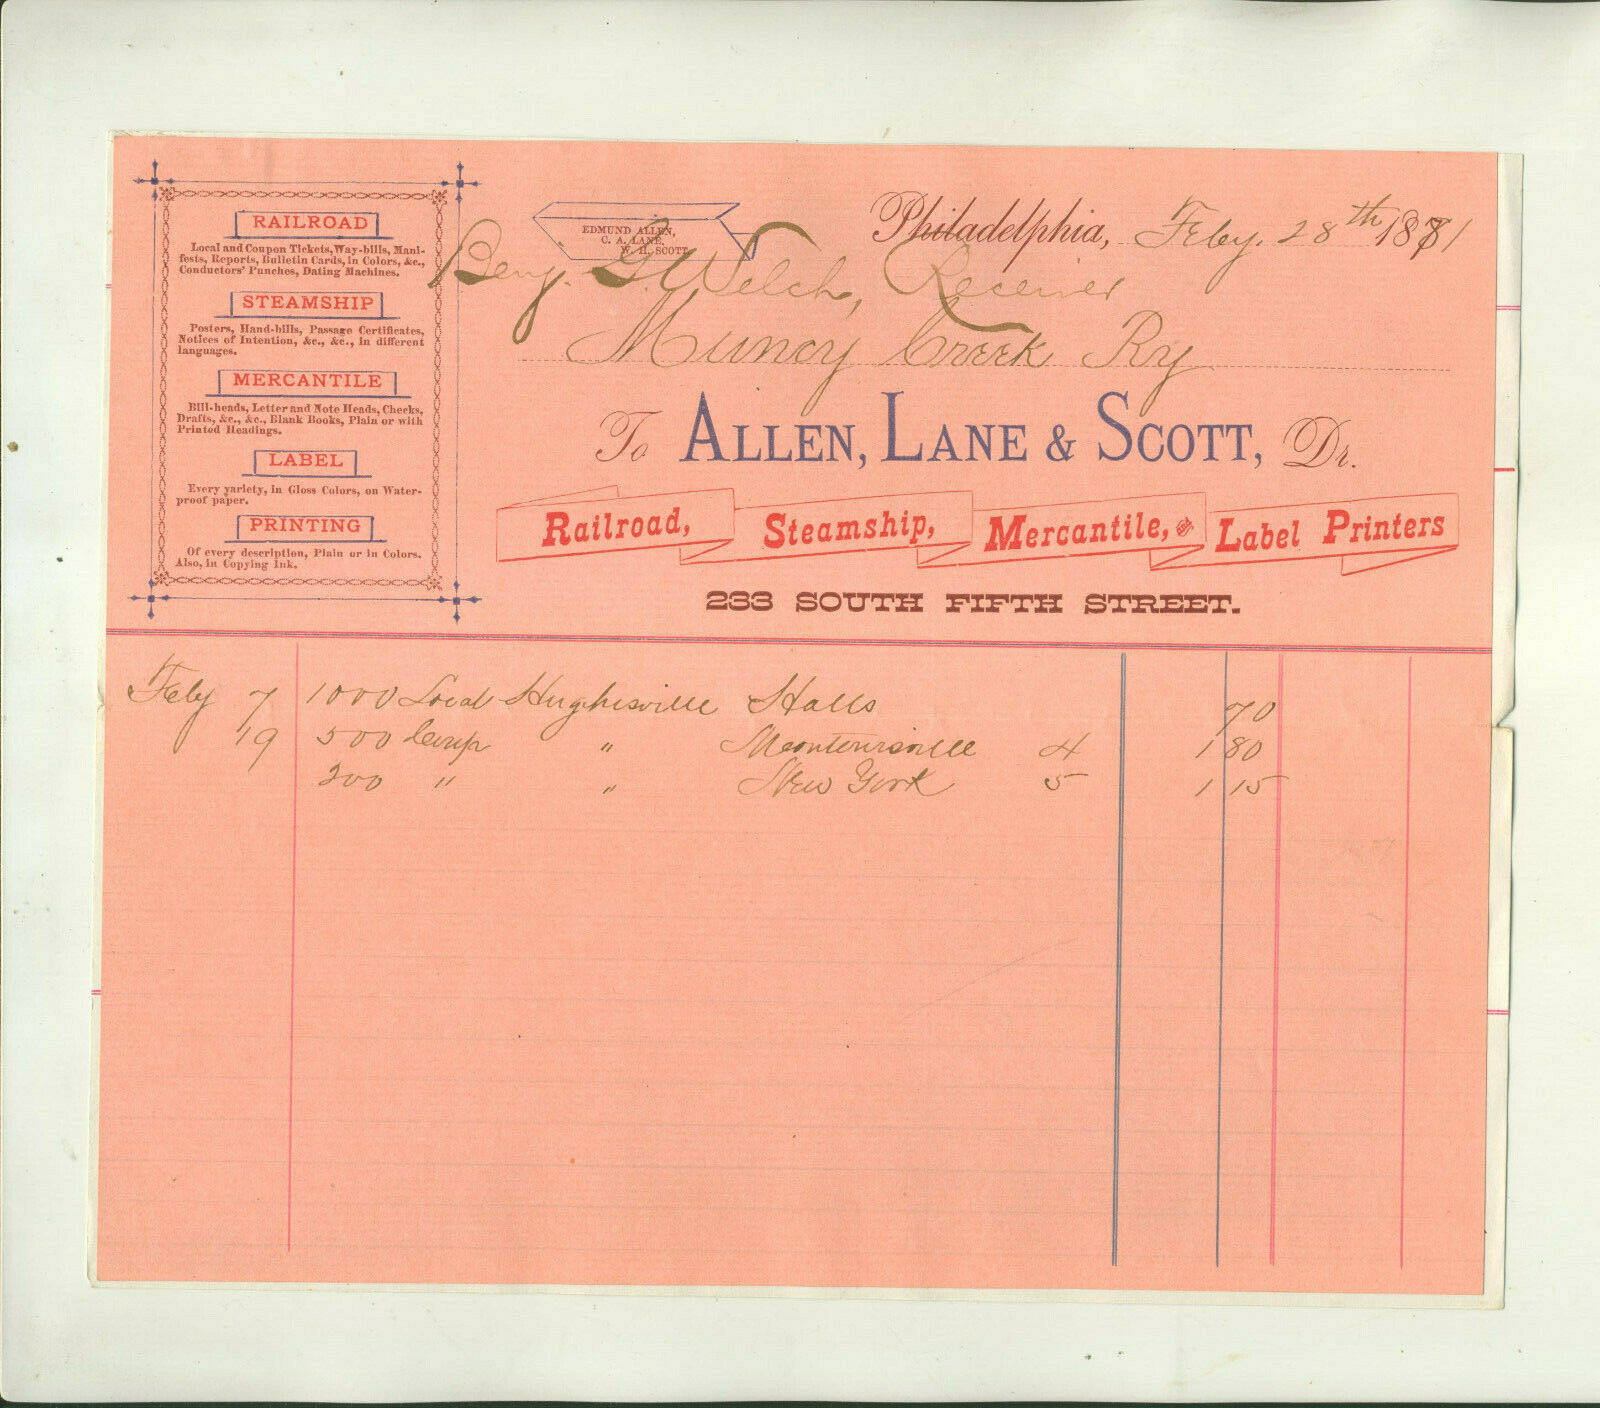 RAILROAD
Local and Coupon Tickets, Way-bills, Mani-
fests, Reports, Bulletin Cards, in Colors, &c.,
Conductors' Punches, Dating Machines.
STEAMSHIP
Posters, Hand-bills, Passage Certificates,
Notices of Intention, &c., &c., in different
languages.
MERCANTILE
Bill-heads, Letter and Note Heads, Checks,
Drafts, &c., &c., Blank Books, Plain or with
Printed Headings.
LABEL
Every variety, in Gloss Colors, on Water-
proof paper.
PRINTING
Of every description, Plain or in Colors.
Also, in Copying Ink.
EDMUND ALLEN,
C. A. LANE,
W. H. SCOTT
Philadelphia, Feby. 28th 1881
Benj. G. Welch, Receiver
Muncy Creek Ry
To ALLEN, LANE & SCOTT, Dr.
Railroad, Steamship, Mercantile, and Label Printers
233 SOUTH FIFTH STREET.
Feby 7 1000 Local Hughesville Halls 70
19 500 Coup " Montoursville 4 1 80
200 " " New York 5 1 15